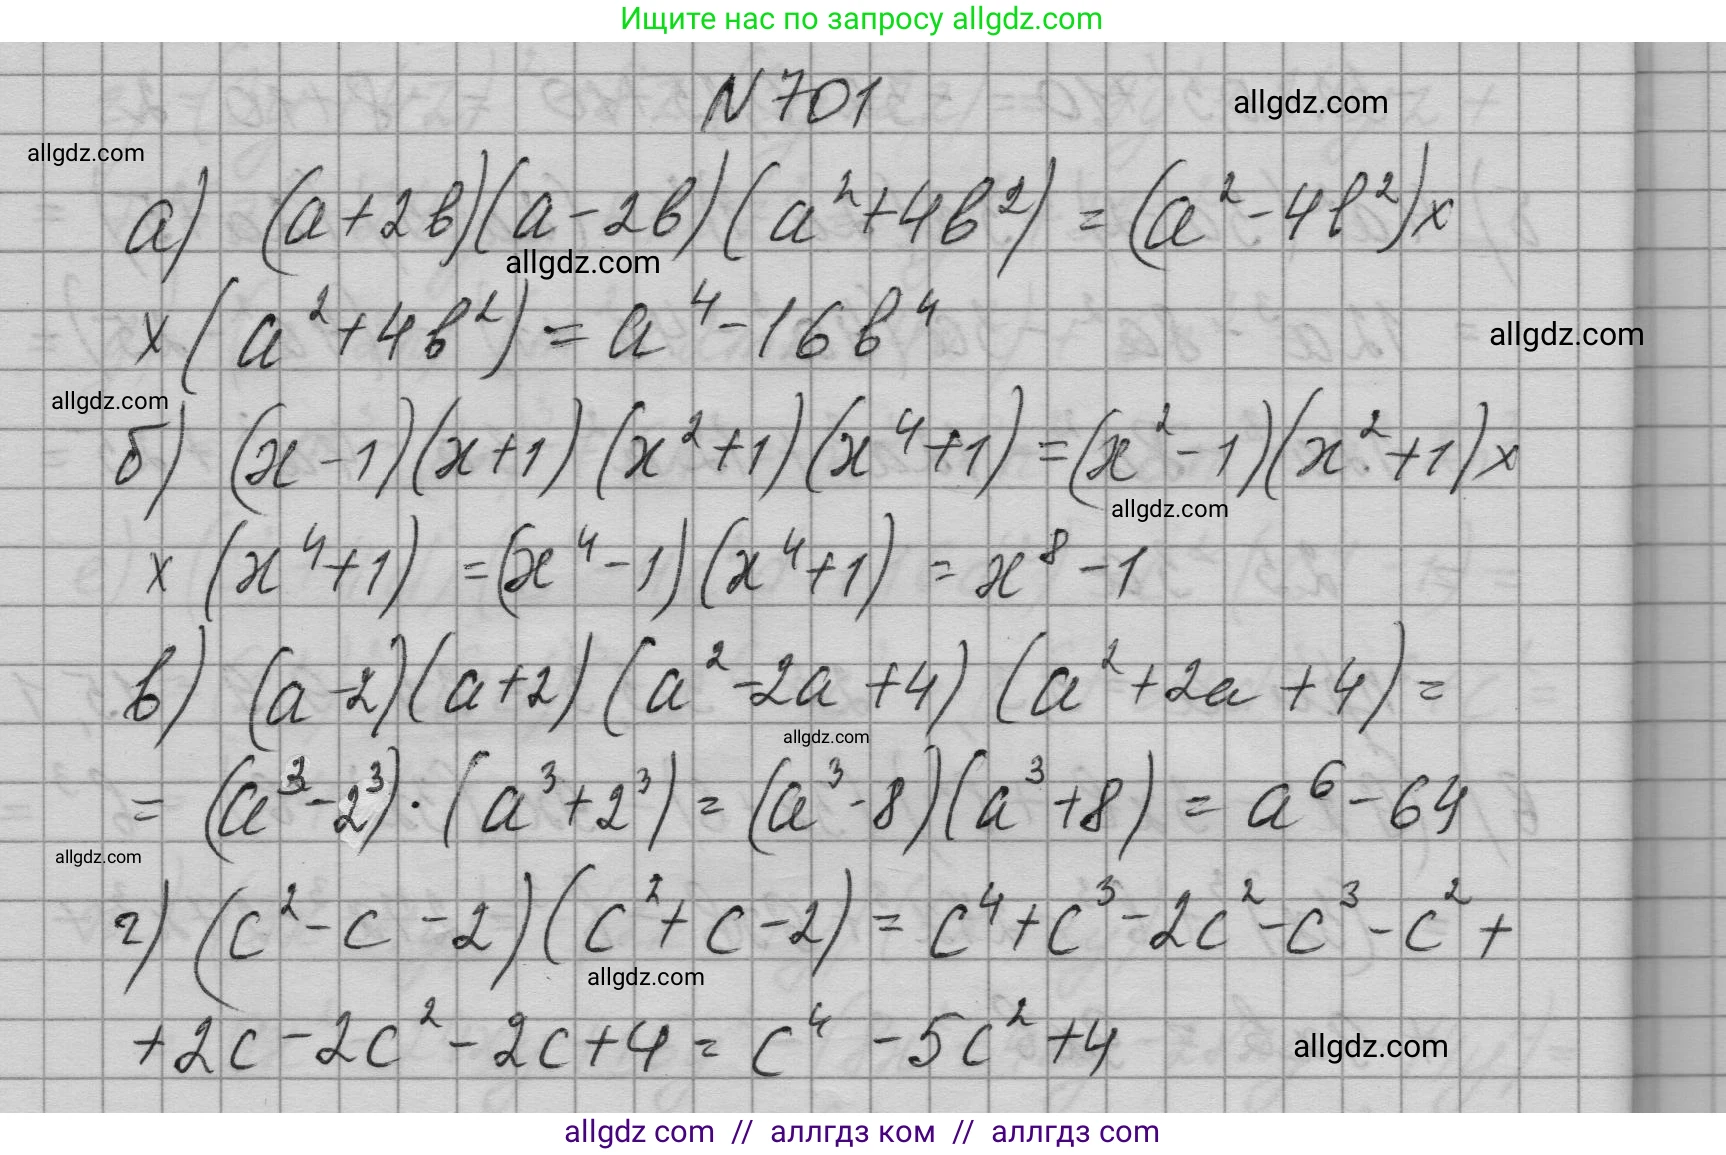 Ищите нас по запросу allgdz.com
N 701
allgdz.com
allgdz.com
а) (a+2b)(a-2b)(a²+4b²) = (a²-4b²)x
allgdz.com
x(a²+4b²) = a⁴-16b⁴
allgdz.com
allgdz.com
б) (x-1)(x+1)(x²+1)(x⁴+1) = (x²-1)(x²+1)x
allgdz.com
x (x⁴+1) = (x⁴-1)(x⁴+1) = x⁸-1
в) (a-2)(a+2)(a²-2a+4)(a²+2a+4) =
allgdz.com
= (a³-2³)·(a³+2³) = (a³-8)(a³+8) = a⁶-64
allgdz.com
г) (c²-c-2)(c²+c-2) = c⁴+c³-2c²-c³-c²+
allgdz.com
+2c-2c²-2c+4 = c⁴-5c²+4
allgdz.com
allgdz com // аллгдз ком // аллгдз com